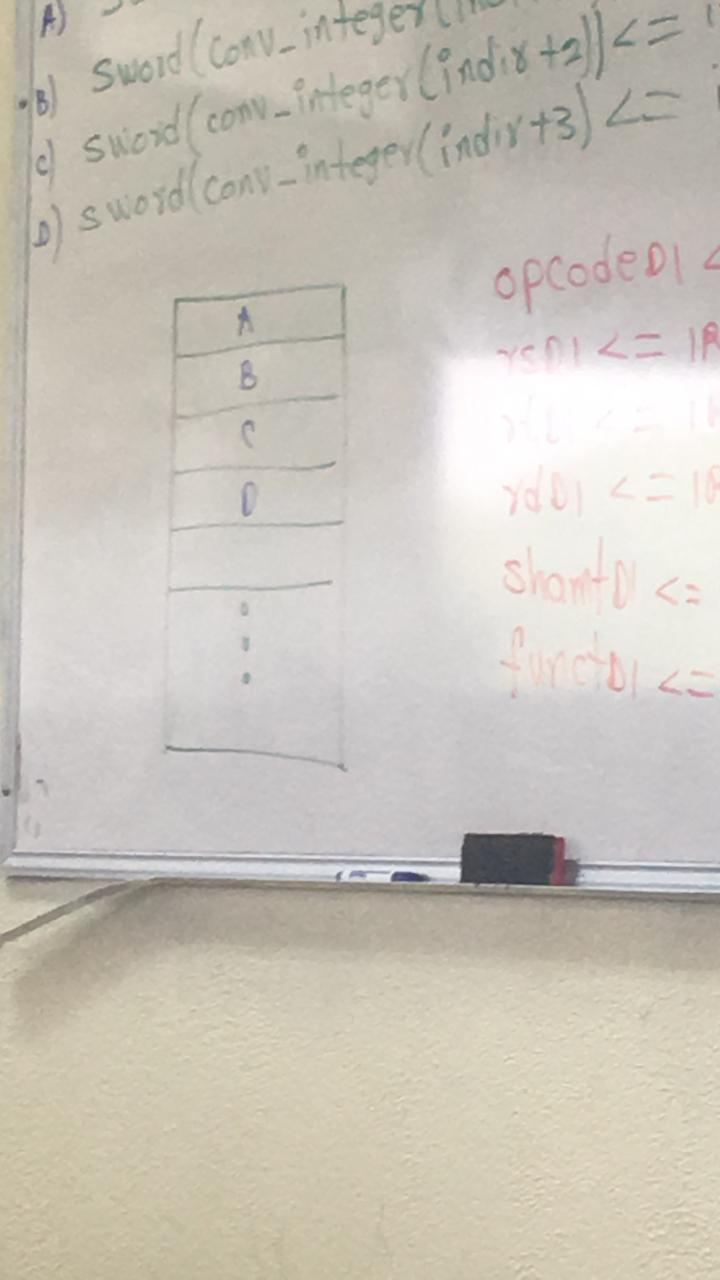 A)
B) sword(conv_integer(
c) sword(conv_integer(indir+2)) <=
D) sword(conv_integer(indir+3) <=
A
B
C
D
opcodeD1 <
rsD1 <= IR
<=
rdD1 <= IR
shamtD1 <=
functD1 <=